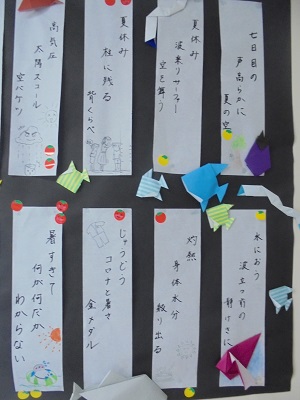 七日目の
声高らかに
夏の空
夏休み
波乗りサーファー
空を舞う
夏休み
柱に残る
背くらべ
高気圧
太陽スコール
空バケツ
水におう
波立つ前の
静けさに
灼熱
身体水分
絞り出る
じゅうどう
コロナと暑さ
金メダル
暑すぎて
何が何だか
わからない